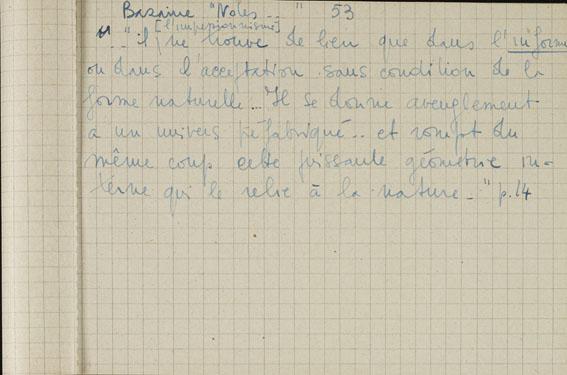 Bazaine "Notes... " 53
[l'impressionnisme]
"... "il ne trouve de lien que dans l'informe
ou dans l'acceptation sans condition de la
forme naturelle... Il se donne aveuglement
à un univers préfabriqué... et rompt du
même coup cette puissante géométrie in-
terne qui le relie à la nature... " p.14